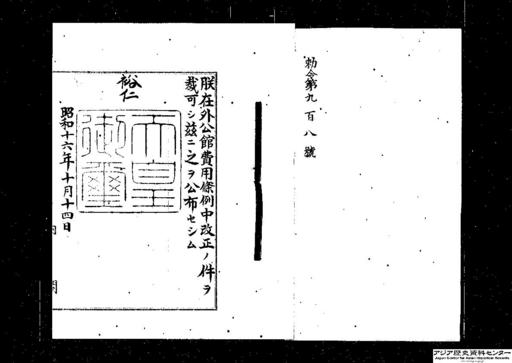 勅令第九百八號
朕在外公館費用條例中改正ノ件ヲ
裁可シ茲ニ之ヲ公布セシム
裕仁
天皇御璽
昭和十六年十月十四日
内閣
アジア歴史資料センター
Japan Center for Asian Historical Records